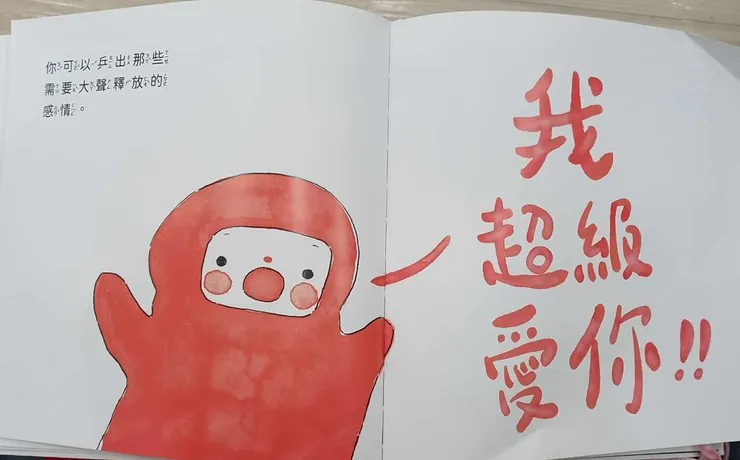 你可以乒出那些
需要大聲釋放的
感情。
我
超級
愛你!!